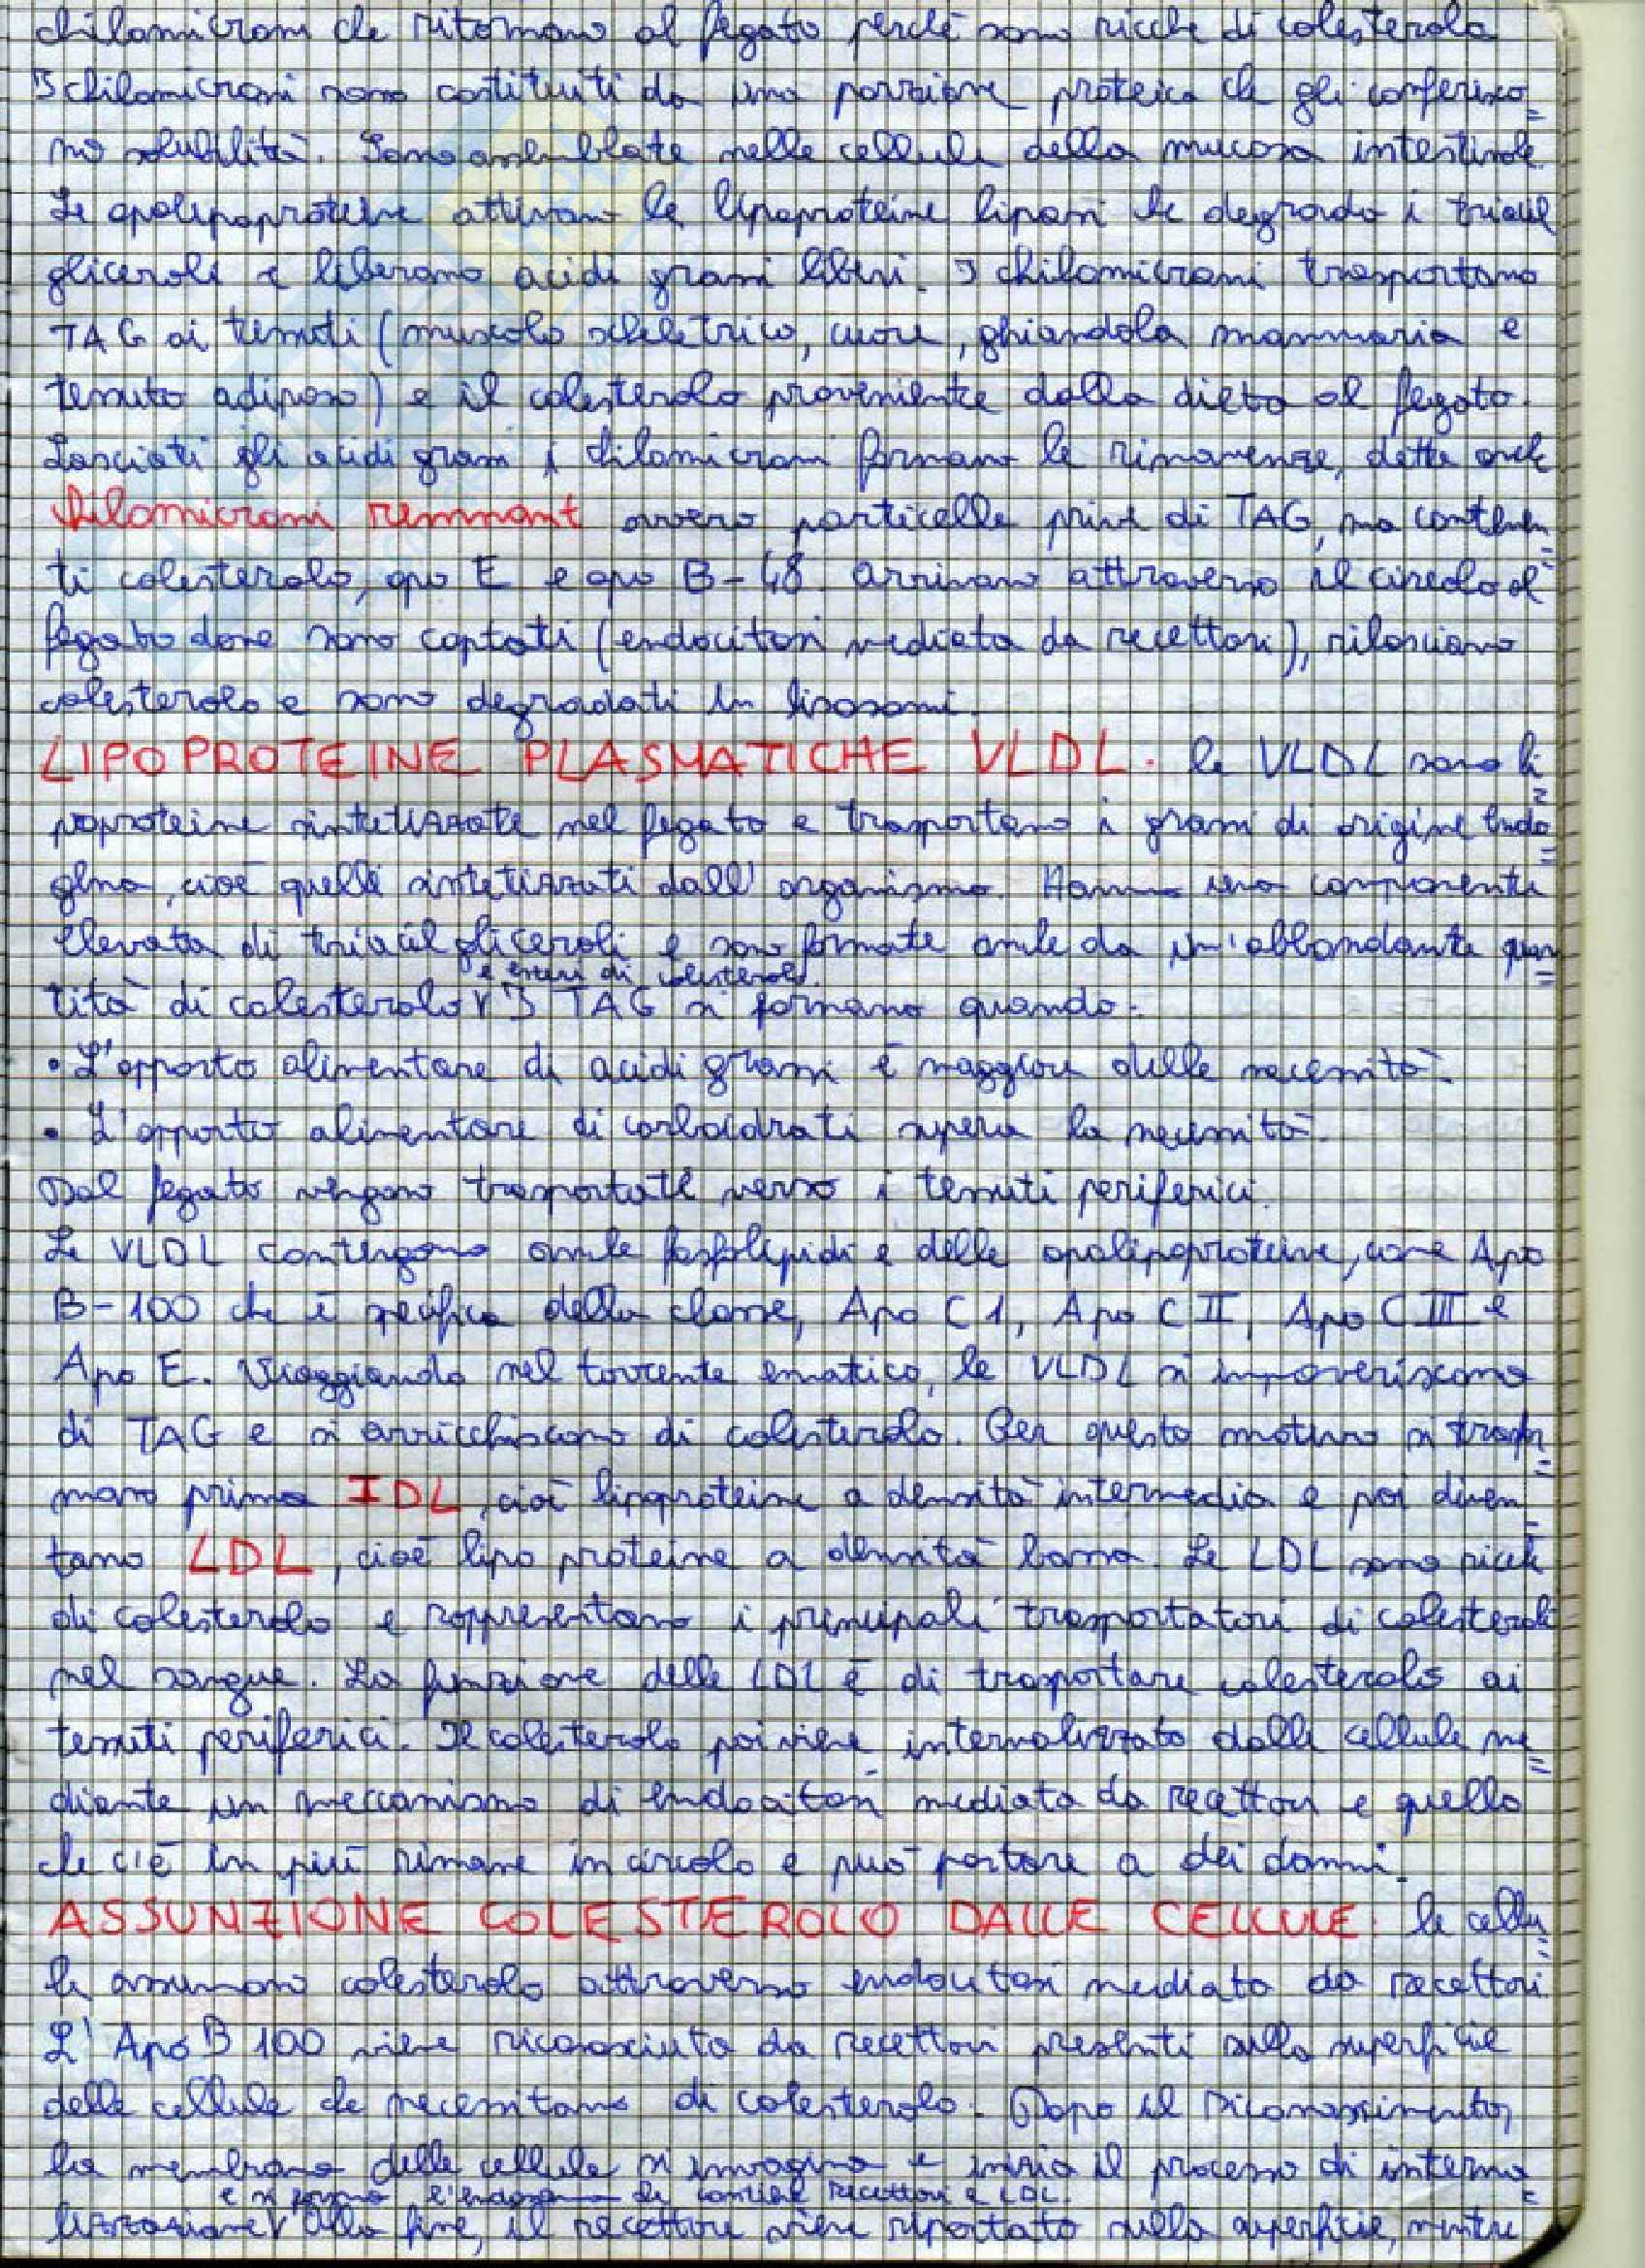 chilomicroni che ritornano al fegato perché sono ricche di colesterolo
I chilomicroni sono costituiti da una porzione proteica che gli conferisco=
no solubilità. Sono assemblate nelle cellule della mucosa intestinale.
Le apolipoproteine attivano le lipoproteine lipasi che degrada i triacil
gliceroli e liberano acidi grassi liberi. I chilomicroni trasportano
TAG ai tessuti (muscolo scheletrico, cuore, ghiandola mammaria e
tessuto adiposo) e il colesterolo proveniente dalla dieta al fegato.
Lasciati gli acidi grassi i chilomicroni formano le rimanenze, dette anche
chilomicroni remnant ovvero particelle prive di TAG, ma contenen=
ti colesterolo, apo E e apo B-48. Arrivano attraverso il circolo al
fegato dove sono captati (endocitosi mediata da recettori), rilasciano
colesterolo e sono degradati in lisosomi.
LIPOPROTEINE PLASMATICHE VLDL. le VLDL sono li=
poproteine sintetizzate nel fegato e trasportano i grassi di origine endo=
gena, cioè quelli sintetizzati dall'organismo. Hanno una componente
elevata di triacilgliceroli e sono formate anche da un'abbondante quan=
e esteri di colesterolo.
tità di colesterolo V I TAG si formano quando:
• L'apporto alimentare di acidi grassi è maggiore delle necessità.
• L'apporto alimentare di carboidrati supera la necessità.
Dal fegato vengono trasportate verso i tessuti periferici.
Le VLDL contengono anche fosfolipidi e delle apolipoproteine, come Apo
B-100 che è specifica della classe, Apo C1, Apo CII, Apo CIII e
Apo E. Viaggiando nel torrente ematico, le VLDL si impoveriscono
di TAG e si arricchiscono di colesterolo. Per questo motivo si trasfor=
mano prima IDL, cioè lipoproteine a densità intermedia e poi diven=
tano LDL, cioè lipo proteine a densità bassa. Le LDL sono ricche
di colesterolo e rappresentano i principali trasportatori di colesterolo
nel sangue. La funzione delle LDL è di trasportare colesterolo ai
tessuti periferici. Il colesterolo poi viene internalizzato dalle cellule me=
diante un meccanismo di endocitosi mediata da recettori e quello
che c'è in più rimane in circolo e può portare a dei danni.
ASSUNZIONE COLESTEROLO DALLE CELLULE: le cellu=
le assumono colesterolo attraverso endocitosi mediato da recettori.
L'Apo B 100 viene riconosciuta da recettori presenti sulla superficie
delle cellule che necessitano di colesterolo. Dopo il riconoscimento,
la membrana delle cellule si invagina e inizia il processo di interna=
e si forma l'endosoma che contiene recettori e LDL.
lizzazione V Alla fine, il recettore viene riportato sulla superficie, mentre